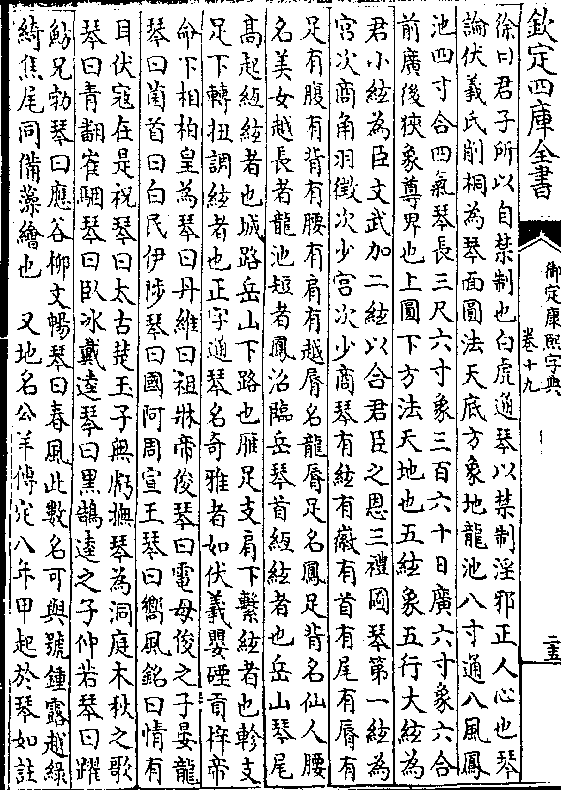 欽定四庫全書
御定康熙字典
卷十九
二十五
徐曰君子所以自禁制也白虎通琴以禁制淫邪正人心也琴
論伏羲氏削桐為琴面圓法天底方象地龍池八寸通八風鳳
池四寸合四氣琴長三尺六寸象三百六十日廣六寸象六合
前廣後狹象尊卑也上圓下方法天地也五絃象五行大絃為
君小絃為臣文武加二絃以合君臣之恩三禮圖琴第一絃為
宮次商角羽徵次少宮次少商琴有絃有徽有首有尾有脣有
足有腹有背有腰有肩有越脣名龍脣足名鳳足背名仙人腰
名美女越長者龍池短者鳳沼臨岳琴首絙絃者也岳山琴尾
高起絙絃者也城路岳山下路也雁足支肩下繫絃者也軫支
足下轉扭調絃者也正字通琴名奇雅者如伏羲嬰硜賁梓帝
命下相柏皇為琴曰丹維曰祖牀帝俊琴曰電母俊之子晏龍
琴曰菌首曰白民伊陟琴曰國阿周宣王琴曰嚮風銘曰情有
目伏寇在是祝琴曰太古楚王子無虧撫琴為洞庭木秋之歌
琴曰青翻崔駰琴曰臥冰戴逵琴曰黑鵠逵之子仲若琴曰躍
魴兄勃琴曰應谷柳文暢琴曰春風此數名可與號鍾露越綠
綺焦尾同備藻繪也　又地名公羊傳定八年甲起於琴如註